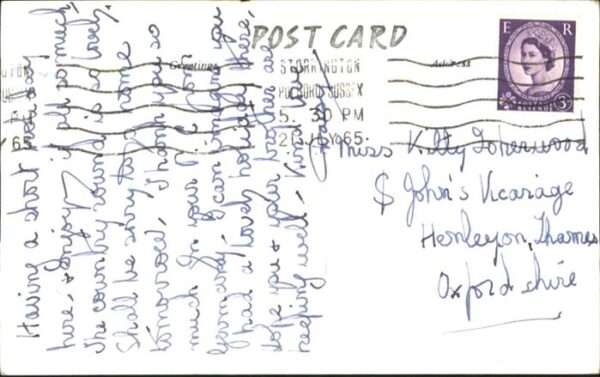 POST CARD
Greetings
Address
E R
STORRINGTON
PULBORO SUSSEX
5. 30 PM
65
POSTAGE REVENUE
3D
Having a short holiday
here, & enjoying it all so much,
the country round is so lovely.
Shall be sorry to go home
tomorrow. Thank you so
much for your P.C. from
Germany. I can imagine you
had a lovely holiday there,
Hope you & your brother are
keeping well. Kind
Miss Kitty Isherwood
S John's Vicarage
Henley on Thames
Oxfordshire